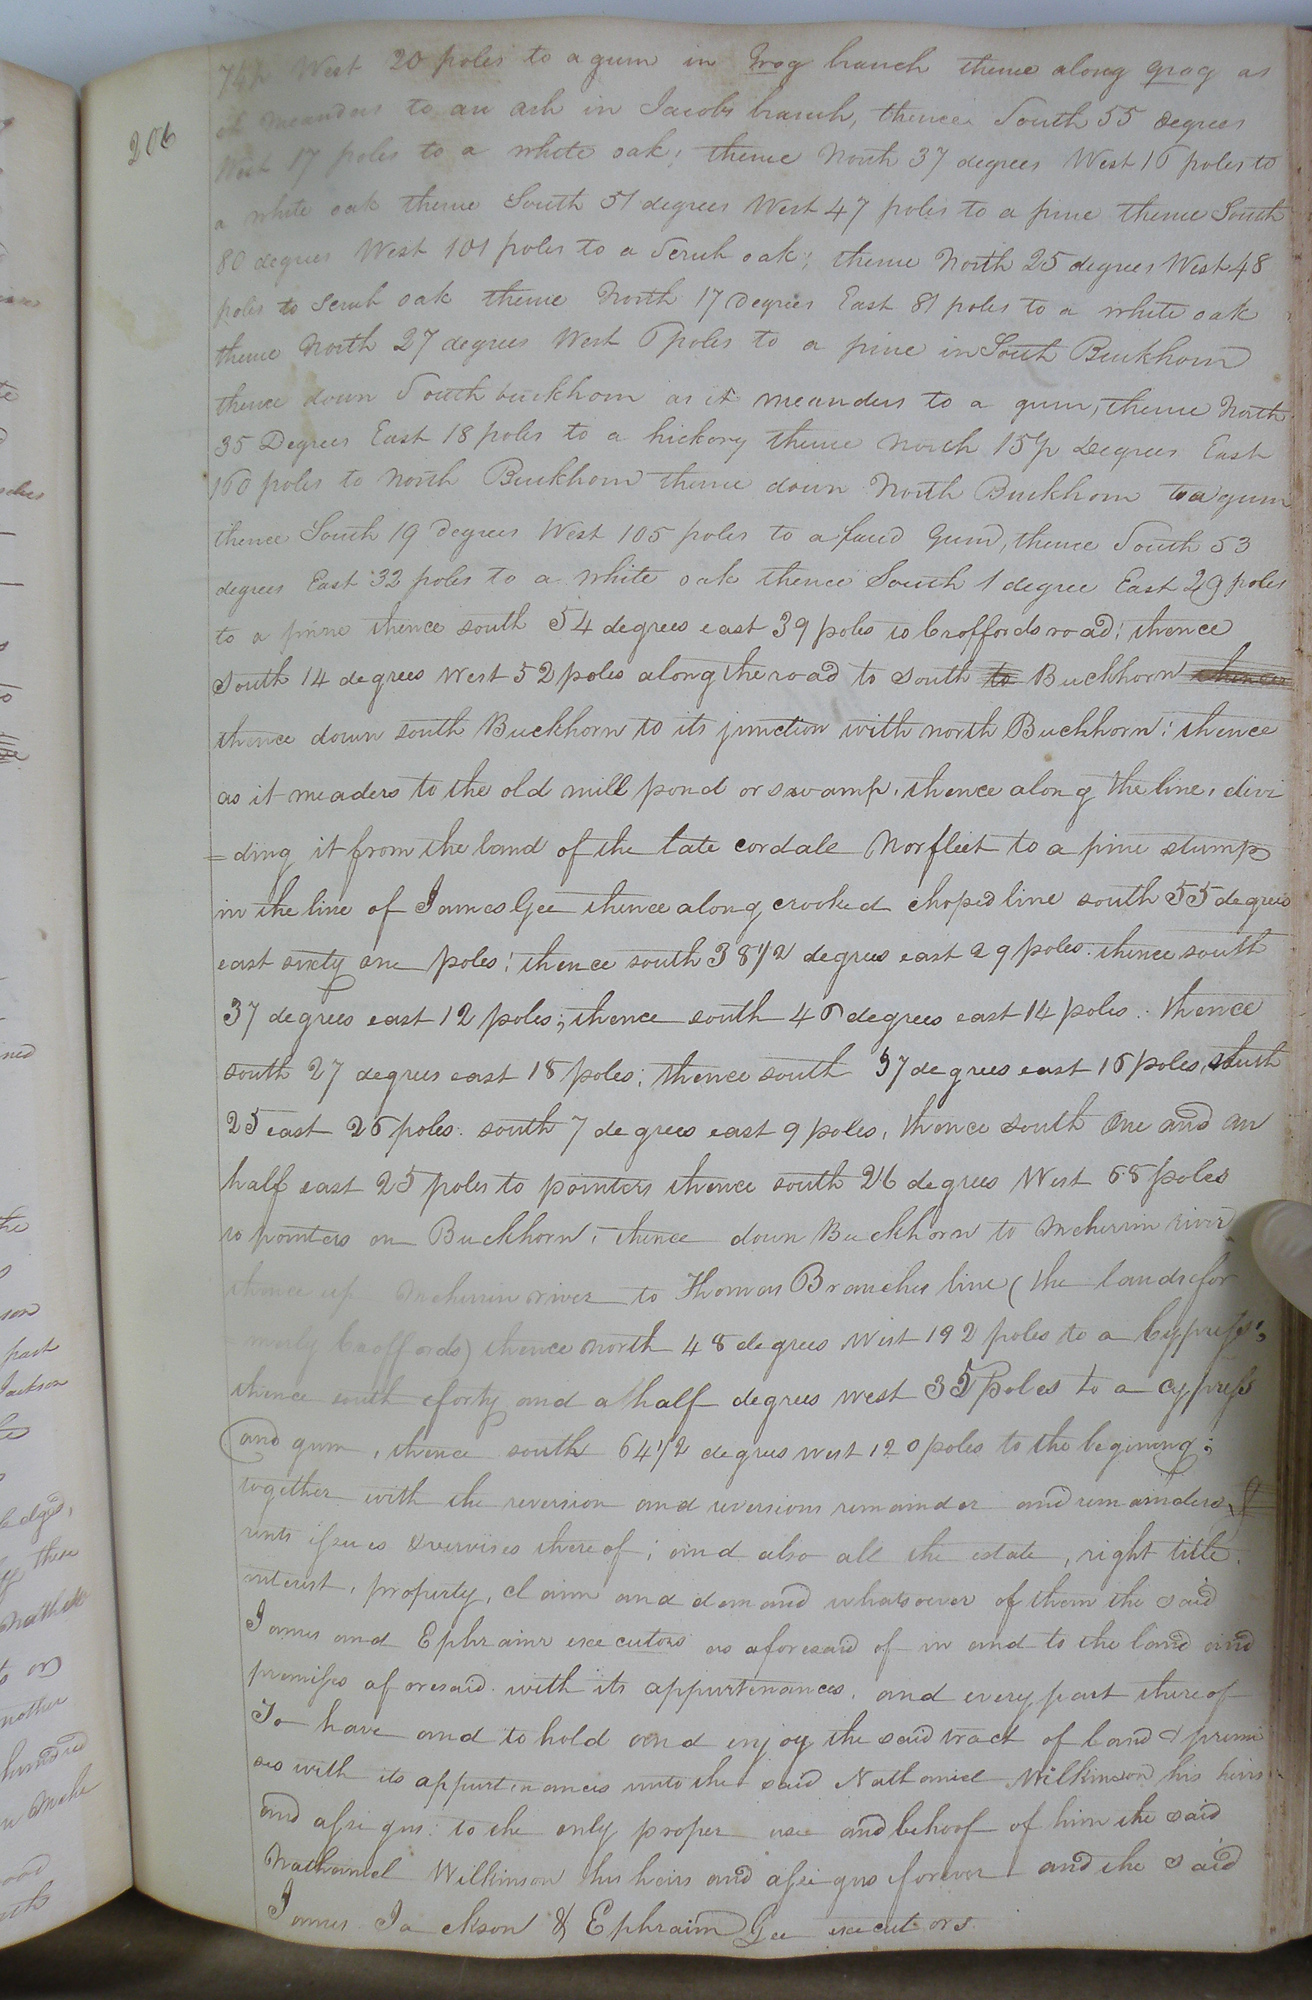 206
74½ West 20 poles to a gum in Grog branch thence along grog as
it meanders to an ash in Jacobs branch, thence South 55 degrees
West 17 poles to a white oak; thence North 37 degrees West 16 poles to
a white oak thence South 51 degrees West 47 poles to a pine thence South
80 degrees West 101 poles to a Scrub oak; thence North 25 degrees West 48
poles to Scrub oak thence North 17 Degrees East 81 poles to a white oak
thence North 27 degrees West 6 poles to a pine in South Buckhorn
thence down South buckhorn as it meanders to a gum, thence North
35 Degrees East 18 poles to a hickory thence North 15½ Degrees East
160 poles to North Buckhorn thence down North Buckhorn to a gum
thence South 19 Degrees West 105 poles to a faced Gum, thence South 53
degrees East 32 poles to a white oak thence South 1 degree East 29 poles
to a pine thence south 54 degrees east 39 poles to Croffords road; thence
South 14 degrees West 52 poles along the road to South to Buckhorn thence
thence down south Buckhorn to its junction with north Buckhorn; thence
as it meaders to the old mill pond or swamp, thence along the line, divi
=ding it from the land of the late cordale Norfleet to a pine stump
in the line of James Gee thence along crooked choped line south 55 degrees
east sixty one poles; thence south 38 1/2 degrees east 29 poles. thence south
37 degrees east 12 poles; thence south 46 degrees east 14 poles. thence
south 27 degrees east 18 poles; thence south 37 degrees east 16 poles, south
25 east 26 poles. south 7 degrees east 9 poles, thence south One and an
half east 25 poles to pointers thence south 26 degrees West 68 poles
to pointers on Buckhorn; thence down Buckhorn to Meherrin river
thence up Meherrin river to Thomas Branches line (the lands for
=merly Croffords) thence north 48 degrees West 192 poles to a Cypress;
thence south forty and a half degrees west 35 poles to a cypress
and gum, thence south 64 1/2 degrees west 120 poles to the begining;
together with the reversion and reversions remainder and remainders &
rents issues & services thereof; and also all the estate, right title.
interest, property, claim and demand whatsoever of them the said
James and Ephraim executors as aforesaid of in and to the land and
premises aforesaid with its appurtenances. and every part thereof
To have and to hold and enjoy the said tract of land & premi
ses with its appurtenances unto the said Nathaniel Wilkinson his heirs
and assigns: to the only proper use and behoof of him the said
Nathaniel Wilkinson his heirs and assigns forever and the said
James Jackson & Ephraim Gee executors